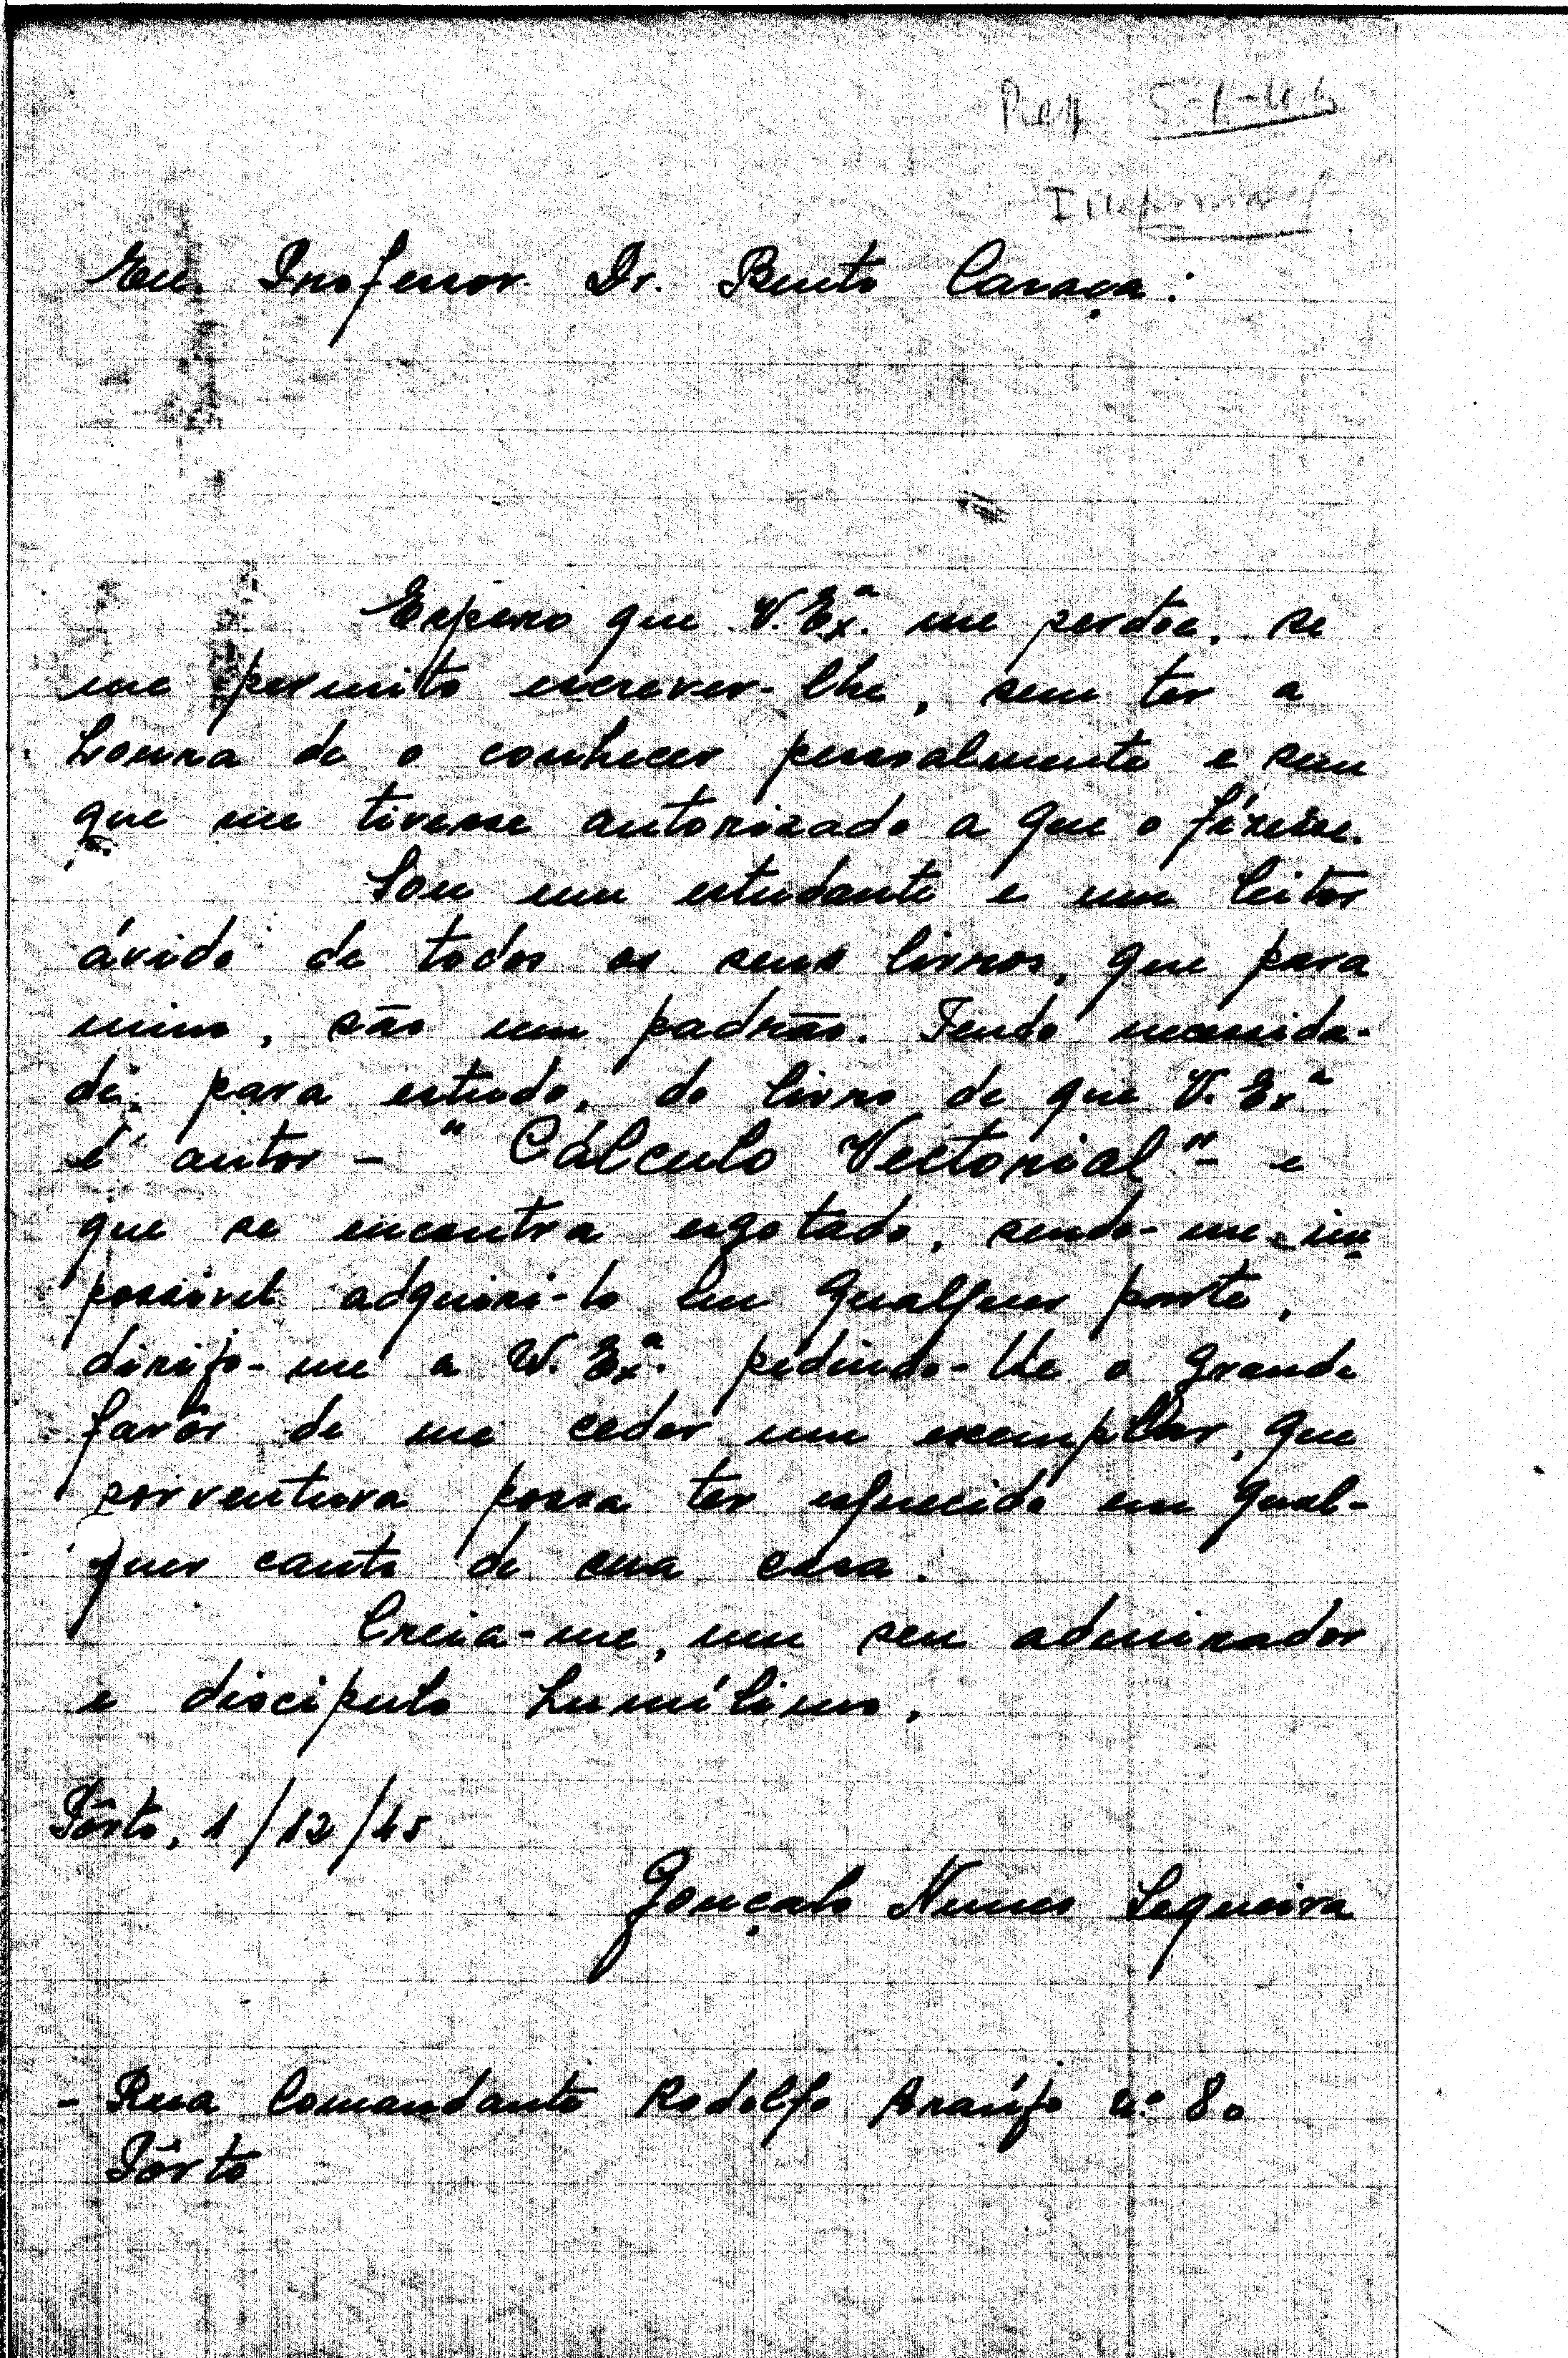 Exmo. Professor Dr. Bento Caraça:
Espero que V. Ex.ª me perdôe, se
me permito escrever-lhe, sem ter a
honra de o conhecer pessoalmente e sem
que me tivesse autorizado a que o fizesse.
Sou um estudante e um leitor
ávido de todos os seus livros, que para
mim, são um padrão. Tendo necessida-
de, para estudo, do livro de que V. Ex.ª
é autor - "Cálculo Vectorial" - e
que se encontra esgotado, sendo-me im
possível adquiri-lo em qualquer parte,
dirijo-me a V. Ex.ª pedindo-lhe o grande
favôr de me ceder um exemplar, que
porventura possa ter esquecido em qual-
quer canto de sua casa.
Creia-me, um seu admirador
e discípulo humílimo,
Pôrto, 1/12/45
Gonçalo Nunes Sequeira
- Rua Comandante Rodolfo Araújo n.º 80
Pôrto